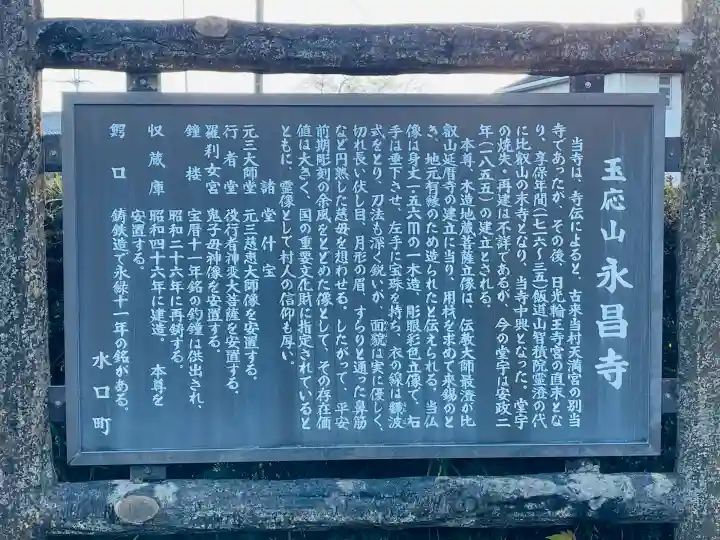 玉応山 永昌寺
当寺は、寺伝によると、古来当村天満宮の別当
寺であったが、その後、日光輪王寺宮の直末とな
り、享保年間(一七一六〜三五)飯道山智積院霊澄の代
に比叡山の末寺となり、当寺中興となった。堂宇
の焼失・再建は不詳であるが、今の堂宇は安政二
年(一八五五)の建立とされる。
本尊、木造地蔵菩薩立像は、伝教大師最澄が比
叡山延暦寺の建立に当り、用材を求めて来錫のと
き、地元有縁のため造られたと伝えられる。当仏
像は身丈一・五六mの一木造、彫眼彩色立像で、右
手は垂下させ、左手に宝珠を持ち、衣の線は飜波
式をとり、刀法も深く鋭いが、面貌は実に優しく、
切れ長い伏し目、月形の眉、すらりと通った鼻筋
など円熟した慈母を想わせる。したがって、平安
前期彫刻の余風をとどめた像として、その存在価
値は大きく、国の重要文化財に指定されていると
ともに、霊像として村人の信仰も厚い。
諸堂什宝
元三大師堂 元三慈恵大師像を安置する。
行者堂 役行者神変大菩薩を安置する。
羅刹女宮 鬼子母神像を安置する。
鐘楼 宝暦十一年銘の釣鐘は供出され、
昭和二十六年に再鋳する。
収蔵庫 昭和四十六年に建造。本尊を
安置する。
鰐口 鋳鉄造で永禄十一年の銘がある。
水口町